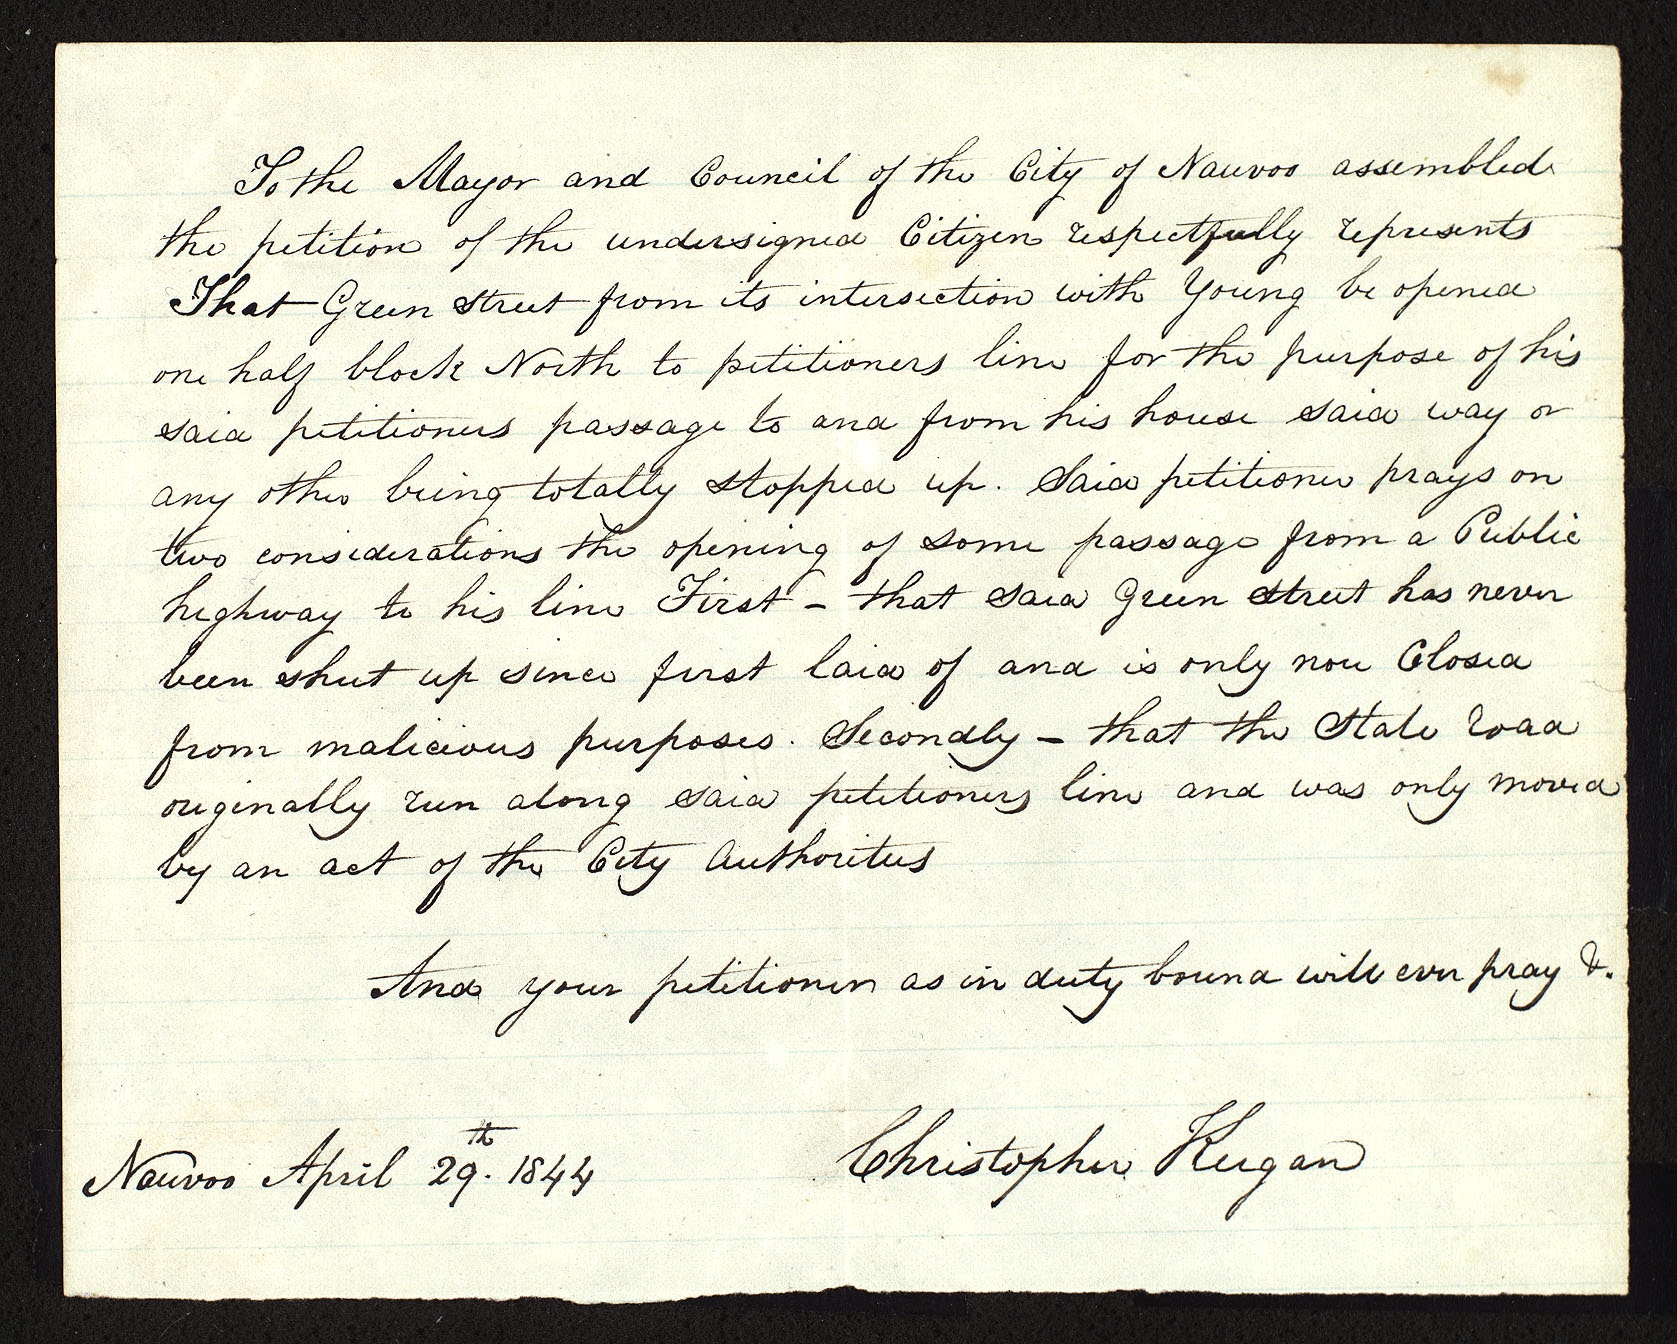 To the Mayor and Council of the City of Nauvoo assembled
the petition of the undersigned Citizen respectfully represents
That Green Street from its intersection with Young be opened
one half block North to petitioners line for the purpose of his
said petitioners passage to and from his house said way or
any other being totally stopped up. Said petitioner prays on
two considerations the opening of some passage from a Public
highway to his line First - that said Green Street has never
been shut up since first laid of and is only now Closed
from malicious purposes. Secondly - that the State road
originally run along said petitioners line and was only moved
by an act of the City Authorities
And your petitioner as in duty bound will ever pray &.
Nauvoo April 29th. 1844
Christopher Keegan